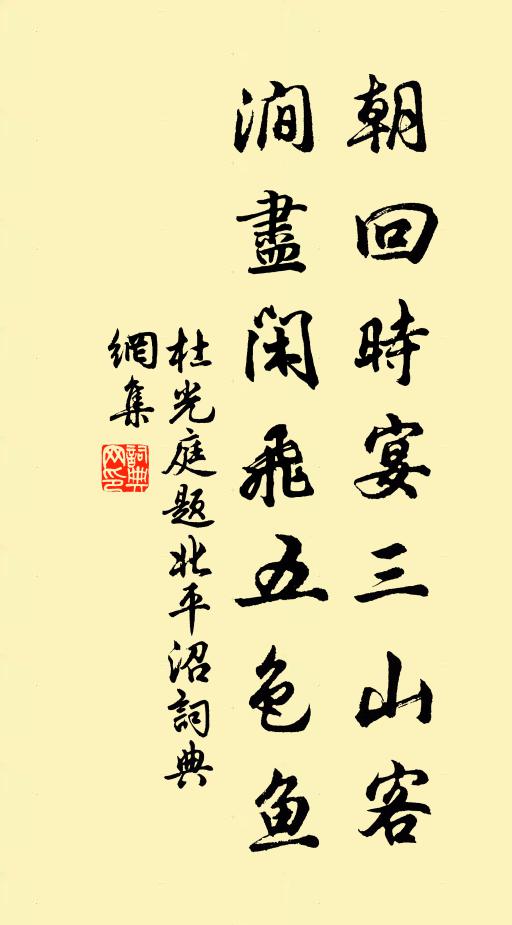 朝回時宴三山客
澗盡閑飛五色魚
杜光庭題北平沼詞典
網集
詞典
网印